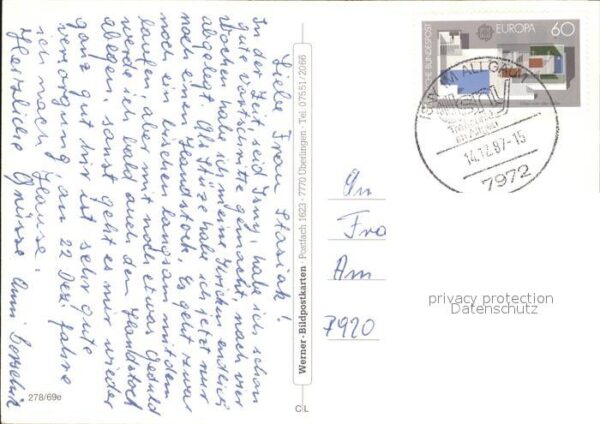 Liebe Frau Stasiak!
In der Zeit seid Isny, habe ich schon
gute Vortschritte gemacht, nach vier
Wochen habe ich meine Kricken endlich
abgelegt. Als Stüze habe ich jetzt nur
noch einen Handstock. Es geht zwar
noch ein bischen langsam mit dem
laufen, aber mit noch etwas Geduld
werde ich bald auch den Handstock
ablegen, sonst geht es mir wieder
ganz gut hir ist sehr gute
versorgung, am 22 Dez. fahre
ich nach Hause.
Herzliche Grüsse Anni
278/69e
Werner-Bildpostkarten · Postfach 1623 · 7770 Überlingen · Tel. 07551/2066
CL
DEUTSCHE BUNDESPOST
EUROPA 60
ISNY IM ALLGÄU
isny
14.12.87-15
7972
An
Fra
Am
7920
privacy protection
Datenschutz